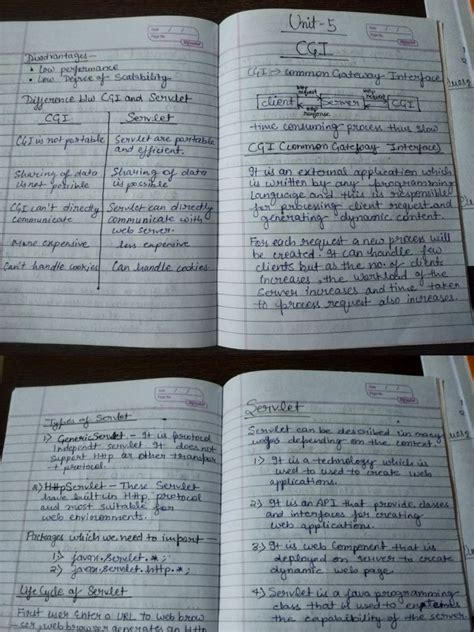 Disadvantages -
• Low performance
• Low Degree of Scalability
Difference b/w CGI and Servlet
CGI Servlet
CGI is not portable Servlet are portable
and efficient.
Sharing of data Sharing of data
is not possible is possible
CGI can't directly Servlet can directly
communicate communicate with
web server.
More expensive less expensive
Can't handle cookies Can handle cookies
Unit-5
CGI
CGI → common Gateway Interface
http request http request
client Server CGI
http response
time consuming process thus slow
CGI (Common Gateway Interface)
It is an external application which
is written by any programming
language and this is responsible
for processing client request and
generating dynamic content.
For each request a new process will
be created. It can handle few
clients but as the no. of clients
increases, the workload of the
server increases and time taken
to process request also increases.
Types of Servlet
1) Generic Servlet - It is protocol
Independent servlet It does not
support Http or other transport
protocol.
2) HttpServlet - These Servlet
have built in Http protocol
and most suitable for
web environments.
Packages which we need to import -
1) javax.servlet.*;
2) javax.servlet.http.*;
Life Cycle of Servlet
First user Enter a URL to web brow
-ser, web browser generates an http
Servlet
Servlet can be described in many
ways depending on the context.
1.) It is a technology which is
used to used to create web
applications.
2.) It is an API that provide classes
and interfaces for creating
web applications.
3.) It is web Component that is
deployed on server to create
dynamic web page.
4.) Servlet is a java programming
class that is used to
the capability of the server